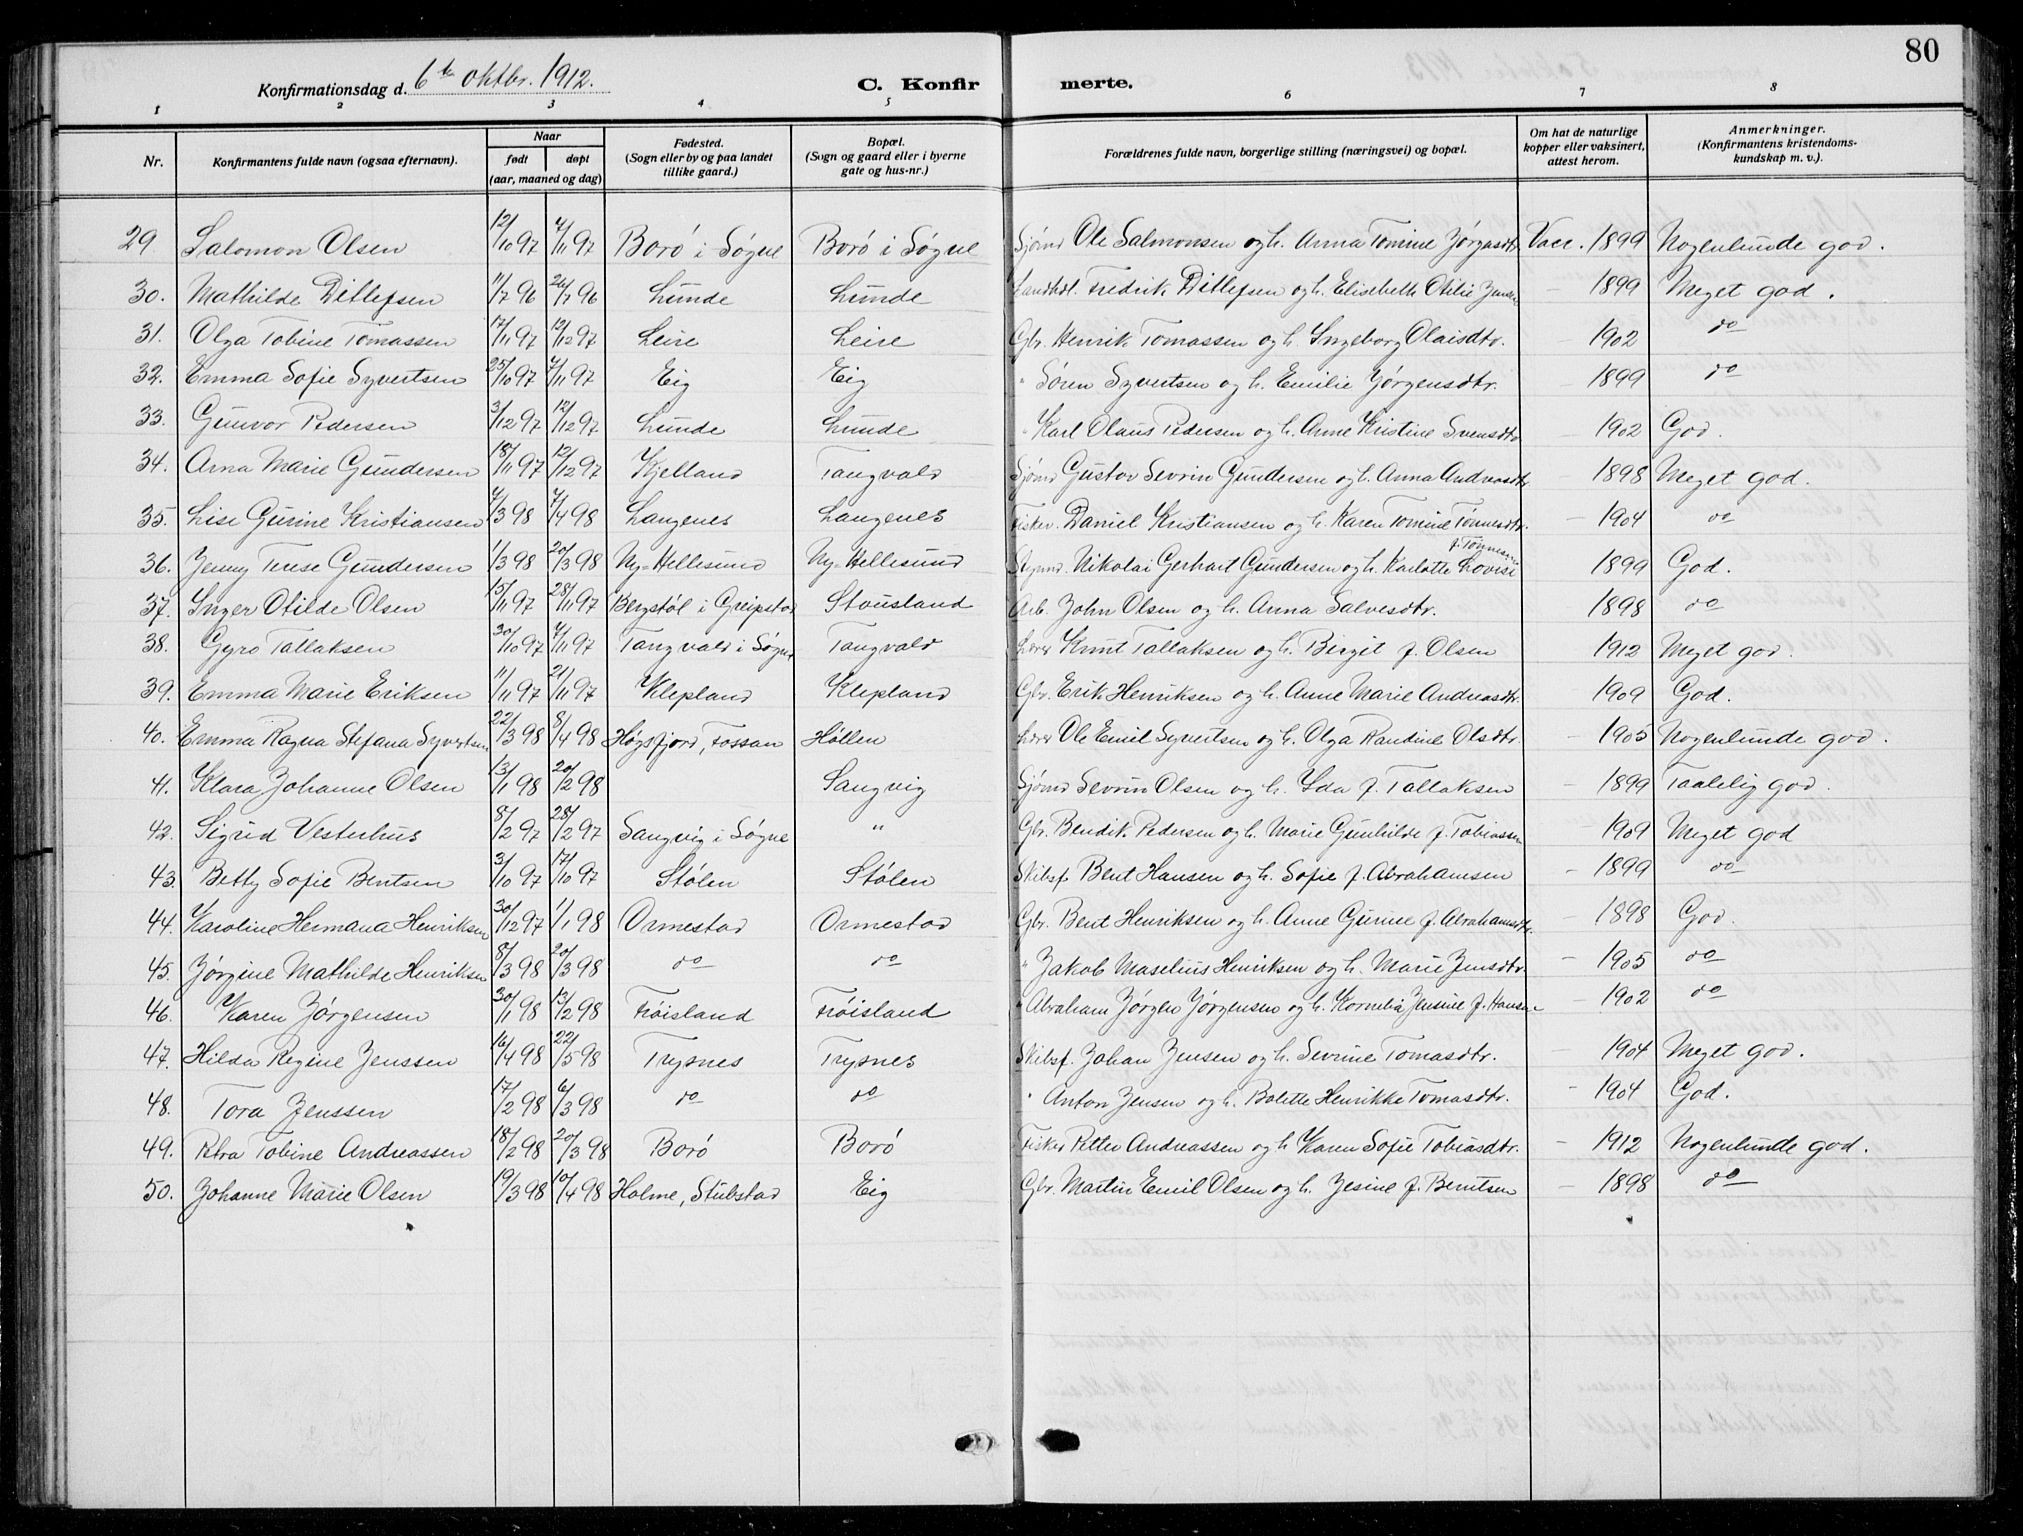 80
Konfirmationsdag d. 6te oktbr. 1912.
C. Konfir merte.
1 2 3 4 5 6 7 8
Nr. Konfirmantens fulde navn (ogsaa efternavn). Naar født døpt (aar, maaned og dag) Fødested. (Sogn eller by og paa landet tillike gaard.) Bopæl. (Sogn og gaard eller i byerne gate og hus-nr.) Forældrenes fulde navn, borgerlige stilling (næringsvei) og bopæl. Om hat de naturlige kopper eller vaksinert, attest herom. Anmerkninger. (Konfirmantens kristendoms-kundskap m. v.).
29. Salomon Olsen 12/10 97 7/11 97 Borö i Søgne Borö i Søgne Sjømd Ole Salmonsen og h. Anna Tomine Jørgasdtr. Vacc. 1899 Nogenlunde god.
30. Mathilde Ditlefsen 11/7 96 26/7 96 Lunde Lunde Landhdl. Fredrik Ditlefsen og h. Elisebeth Otilie Jensen – 1899 Meget god.
31. Olga Tobine Tomassen 17/11 97 12/12 97 Leire Leire Gbr. Henrik Tomassen og h. Ingeborg Olaisdtr. – 1902 do
32. Emma Sofie Syvertsen 25/10 97 7/11 97 Eig Eig " Søren Syvertsen og h. Emilie Jørgensdtr. – 1899 do
33. Gunvor Pedersen 3/12 97 12/12 97 Lunde Lunde " Karl Olaus Pedersen og h. Anne Kristine Svensdtr – 1902 God.
34. Anna Marie Gundersen 18/11 97 12/12 97 Kjelland Tangvald Sjømd Gustav Sevrin Gundersen og h. Anna Andreasdtr. – 1898 Meget god.
35. Lise Gurine Kristiansen 4/3 98 7/4 98 Langenes Langenes Fisker. Daniel Kristiansen og h. Karen Tomine Tønnesdtr. – 1904 do
36. Jenny Terese Gundersen 1/3 98 20/3 98 Ny-Hellesund Ny-Hellesund Nikolai Gerhart Gundersen og h. Karlotte Lovise f. Tønnesen – 1899 God.
37. Inger Otilde Olsen 15/11 97 28/11 97 Bergstøl i Greipstad Stousland Arb. John Olsen og h. Anna Salvesdtr. – 1898 do
38. Gyro Tallaksen 30/10 97 7/11 97 Tangvald i Søgne Tangvald Lærer Knut Tallaksen og h. Birgit f. Olsen – 1912 Meget god.
39. Emma Marie Eriksen 11/11 97 21/11 97 Klepland Klepland Gbr. Erik Henriksen og h. Anne Marie Andreasdtr. – 1909 God.
40. Emma Ragna Stefana Syvertsen 22/3 98 8/4 98 Høgsfjord, Fossan Höllen Lærer Ole Emil Syvertsen og h. Olga Randine Olsdtr. – 1905 Nogenlunde god.
41. Klara Johanne Olsen 13/1 98 20/2 98 Sangvig Sjømd Sevrin Olsen og h. Ida f. Tallaksen – 1899 Taalelig god.
42. Sigrid Vesterhus 8/2 97 28/2 97 Sangvig i Søgne " Gbr. Bendik Pedersen og h. Marie Gunhilde f. Tobiassen – 1909 Meget god
43. Betty Sofie Bentsen 3/10 97 17/10 97 Stølen Stølen Skibsf. Bent Hansen og h. Sofie f. Abrahamsen – 1899 do
44. Karoline Hermana Henriksen 30/12 97 1/1 98 Ormestad Ormestad Gbr. Bent Henriksen og h. Anne Gurine f. Abrahamsdtr. – 1898 God.
45. Jørgine Mathilde Henriksen 8/3 98 20/3 98 do do " Jakob Maselius Henriksen og h. Marie Jensdtr. – 1905 do
46. Karen Jørgensen 30/1 98 13/2 98 Fröisland Fröisland " Abraham Jørgen Jørgensen og h. Kornelia Jensine f. Hansen – 1902 do
47. Hilda Regine Jenssen 16/4 98 22/5 98 Trysnes Trysnes Skibsf. Johan Jensen og h. Sevrine Tomasdtr. – 1904 Meget god.
48. Tora Jenssen 17/2 98 6/3 98 do do " Anton Jensen og h. Bolette Henrikke Tomasdtr. – 1904 God.
49. Petra Tobine Andreassen 18/2 98 20/3 98 Borö Borö Fisker Petter Andreassen og h Karen Sofie Tobiasdtr. – 1912 Nogenlunde god.
50. Johanne Marie Olsen 19/3 98 10/4 98 Holme, Stubstad Eig Gbr. Martin Emil Olsen og h. Jesine f. Berntsen – 1898 do